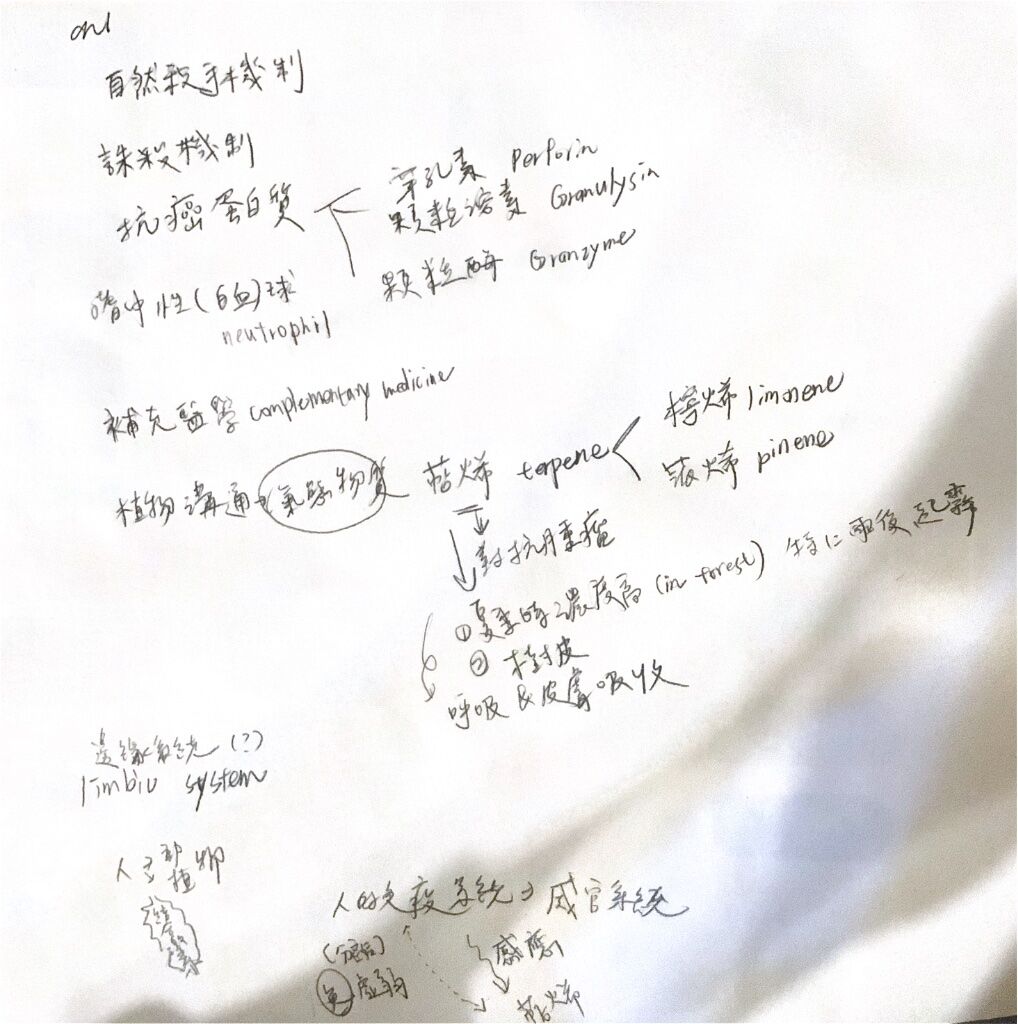 ch1
自然殺手機制
誅殺機制
抗癌蛋白質
穿孔素 Perforin
顆粒溶素 Granulysin
顆粒酶 Granzyme
嗜中性(白血)球
neutrophil
補充醫學 complementary medicine
植物溝通 氣態物質 萜烯 terpene
檸烯 limonene
蒎烯 pinene
對抗腫瘤
① 夏季時濃度高 (in forest) 特に雨後起霧
② 樹皮
呼吸&皮膚吸收
邊緣系統 (?)
limbic system
植物
人的免疫系統 感官系統
虛弱
感應
萜烯